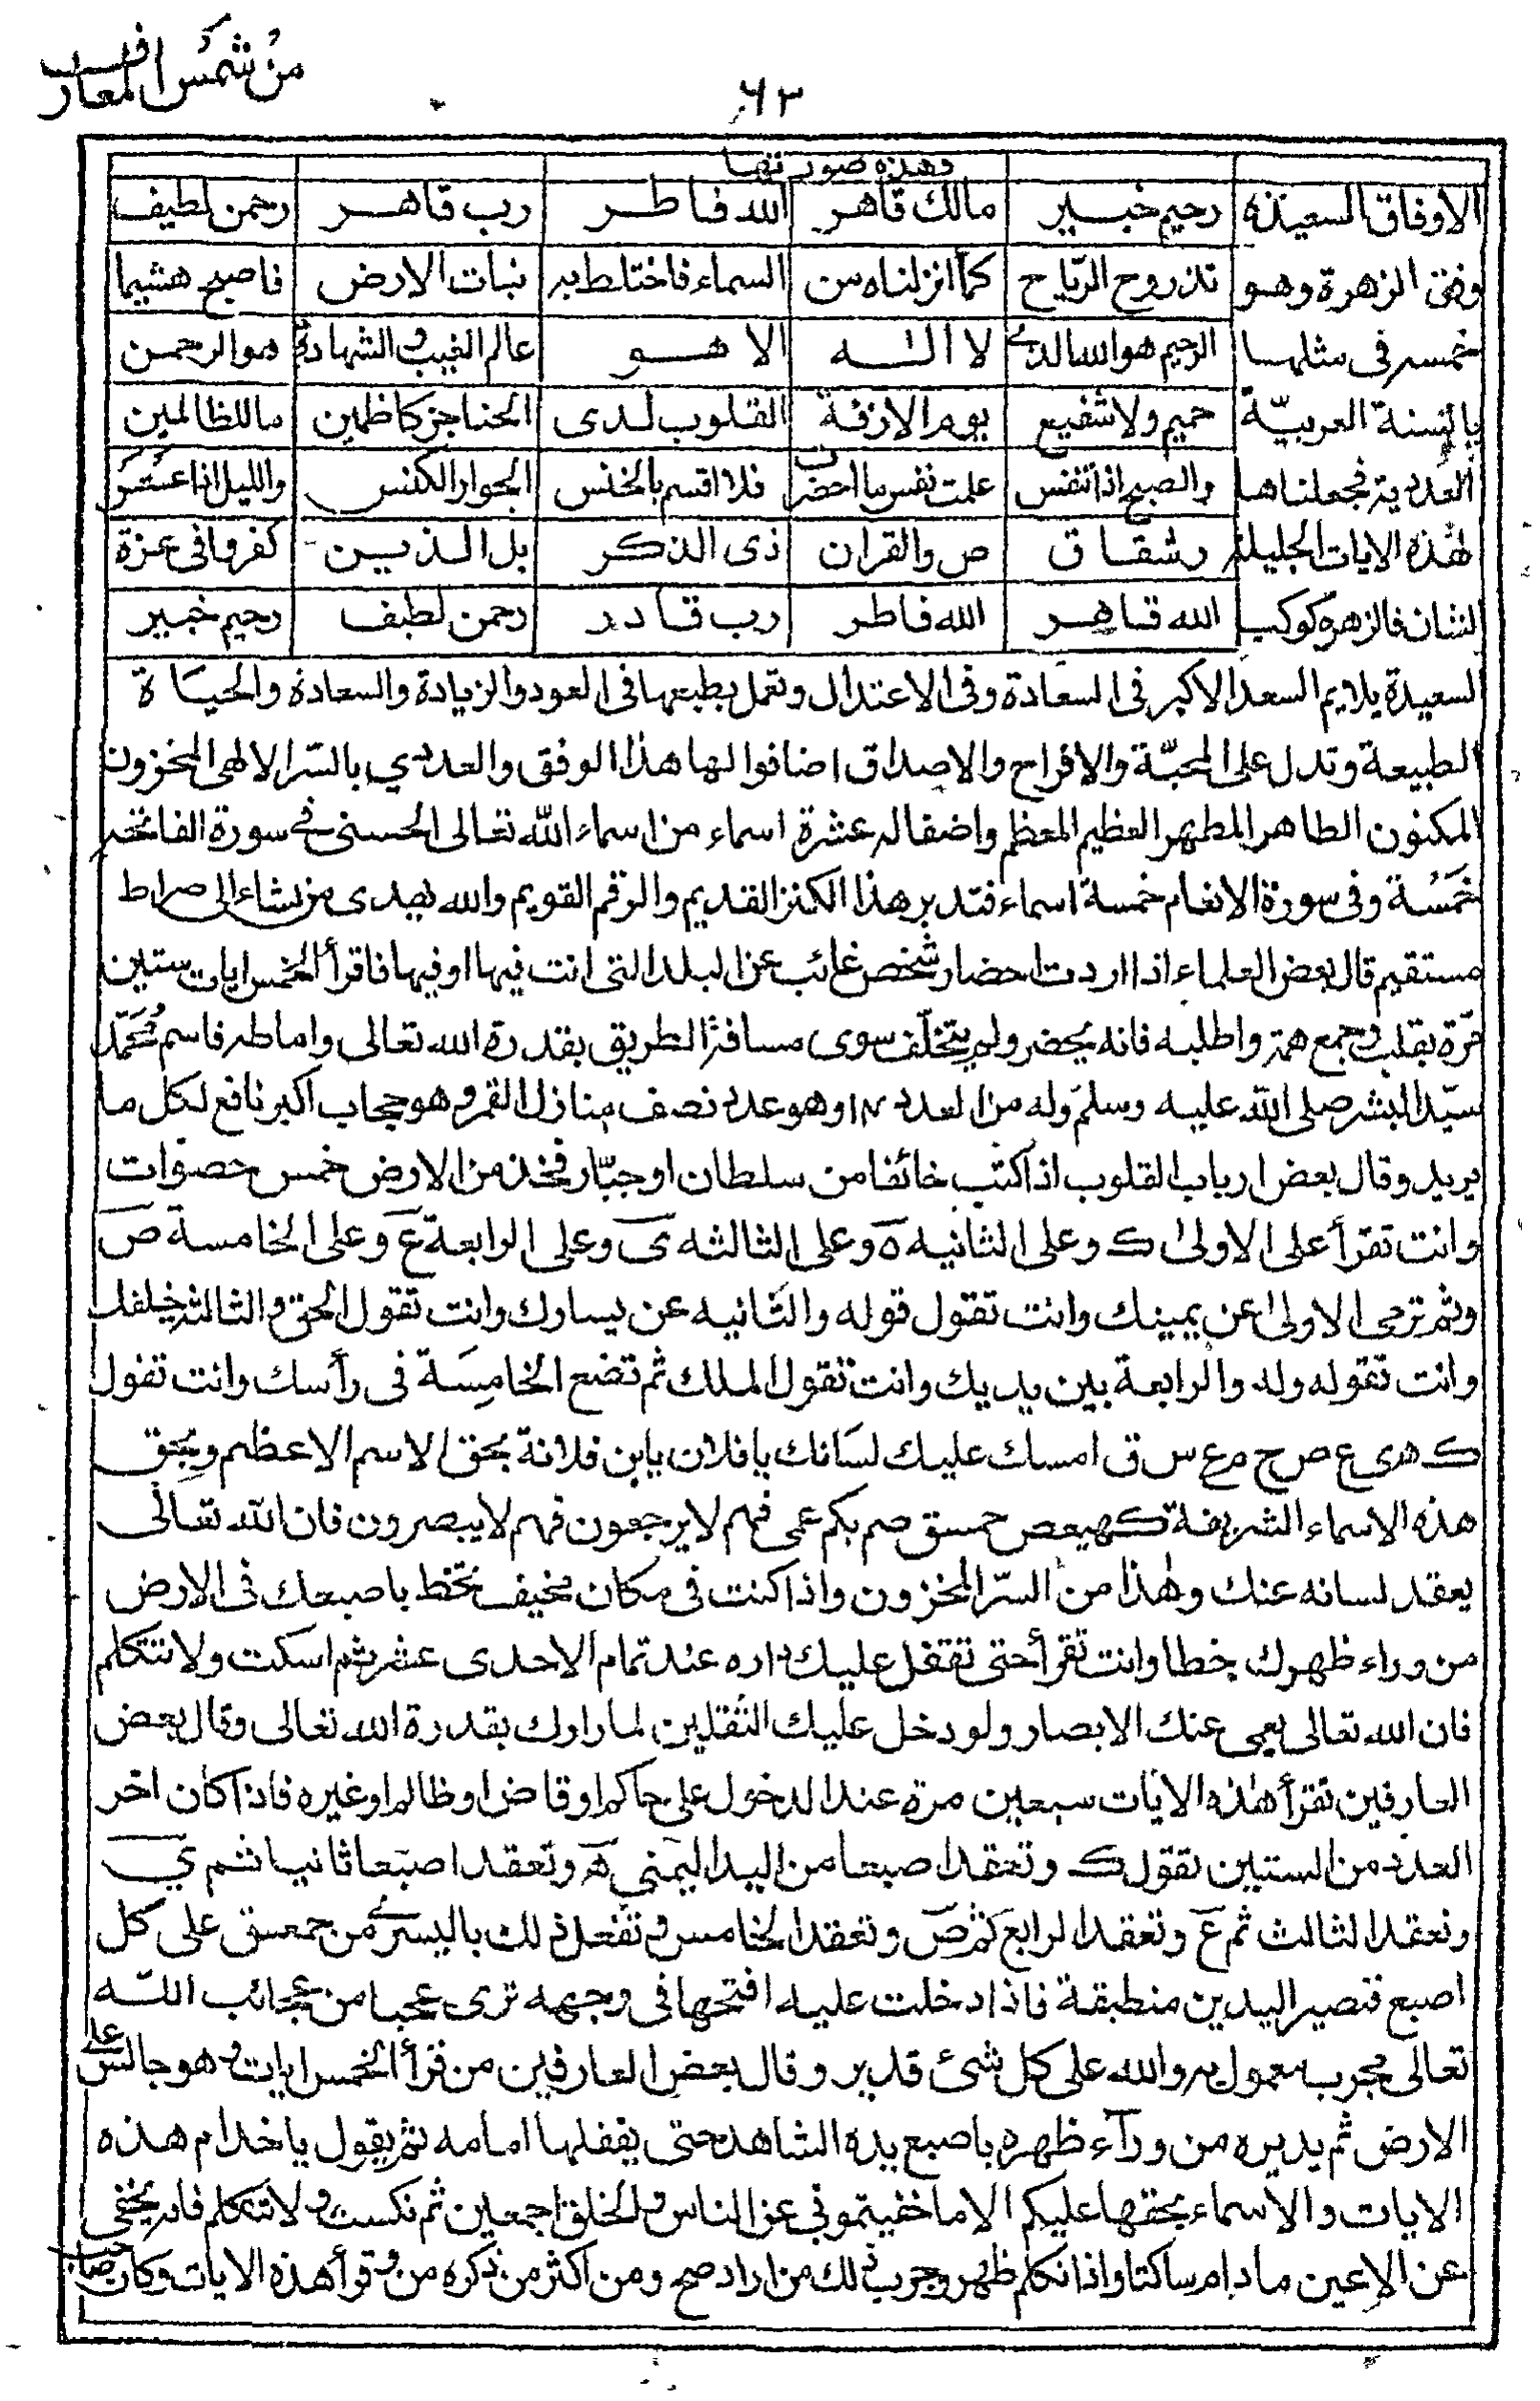 من شمس المعارف
٦٣
وهذه صورتها
الاوفاق السعيدة رحيم خبير مالك قاهر الله فاطر رب قاهر رحمن لطيف
وفق الزهرة وهو تذروح الرّياح كمآ انزلناه من السماء فاختلط به نبات الارض فاصبح هشيما
خمسه فى مثلها الرحيم هو الله الذے لا اله الا هو عالم الغيب و الشهادة هو الرحمن
بالسنة العربيّة حميم ولا شفيع يوم الازفة القلوب لدى الحناجر كاظمين ما للظالمين
العددية فجعلناها والصبح اذا تنفس علمت نفس ما احضرت فلا اقسم بالخنس الجوار الكنس والليل اذا عسعس
لهذه الايات الجليلة رشقاق ص والقران ذى الذكر بل الذين كفروا فى عزة
الشان فالزهره كوكب الله قاهر الله فاطر رب قادر رحمن لطيف رحيم خبير
السعيدة يلايم السعد الاكبر فى السعادة وفى الاعتدال وتعمل بطبعها فى العود والزيادة والسعادة والحياة
الطبيعة وتدل على المحبّة والافراح والاصداق اضافوا لها هذا الوفق والعددي بالسّر الالهى المخزون
المكنون الطاهر المطهر العظيم المعظم واضفاله عشرة اسماء من اسماء الله تعالى الحسنى فے سورة الفاتحه
خمسُة وفى سورة الانعام خمسة اسماء فتدبر هذا الكنز القديم والرقم القويم والله يهدى من يشاء الى صراط
مستقيم قال بعض العلماء اذا اردت احضار شخص غائب عن البلد التى انت فيها او فيها فاقرأ الخمس ايات ستين
مرّة بقلب وجمع همة واطلبه فانه يحضر ولم يتخلّف سوى مسافة الطريق بقدرة الله تعالى واما طه فاسم محمّد
سيّد البشر صلى الله عليه وسلم وله من العدد ١٤ وهو عدد نصف منازل القمر وهو حجاب اكبر نافع لكل ما
يريد وقال بعض ارباب القلوب اذا كنت خائفا من سلطان او جبّار فخذ من الارض خمس حصوات
وانت تقرأ على الاولى ك وعلى الثانيه ه وعلى الثالثه ى وعلى الرابعة ع وعلى الخامسة ص
وثم ترمى الاولى عن يمينك وانت تقول قوله والثانيه عن يسارك وانت تقول الحق والثالثه خلفك
وانت تقوله وله والرابعة بين يديك وانت تقول الملك ثم تضع الخامِسَة فى رأسك وانت تقول
ك ه ى ع ص ح م ع س ق امسك عليك لسَانك يا فلان يا بن فلانة بحق الاسم الاعظم وبحق
هذه الاسماء الشريفة كهيعص حمسق صم بكم عمى فهم لا يرجعون فهم لا يبصرون فان الله تعالى
يعقد لسانه عنك وهٰذا من السّر المخزون واذا كنت فى مكان مخيف تخط باصبعك فى الارض
من وراء ظهرك خطا وانت تقرأ حتى تقفل عليك داره عند تمام الاحدى عشر ثم اسكت ولا تتكلم
فان الله تعالى يعمى عنك الابصار ولو دخل عليك الثقلين لما راوك بقدرة الله تعالى وقال بعض
العارفين تقرأ هٰذه الايات سبعين مرة عند الدخول على حاكم او قاض او ظالم او غيره فاذا كان اخر
العدد من الستين تقول ك وتعقد اصبعا من اليد اليمنى ه وتعقد اصبعا ثانيا ثم ي
وتعقد الثالث ثم ع وتعقد الرابع ثم ص وتعقد الخامس وتفعل ذلك باليسرى من حمعسق على كل
اصبع فتصير اليدين منطبقة فاذا دخلت عليه افتحها فى وجهه ترى عجبا من عجائب الله
تعالى مجرب معمول به والله على كل شئ قدير وقال بعض العارفين من قرأ الخمس ايات وهو جالس على
الارض ثم يديره من ورآء ظهره باصبع يده الشاهد حتى يقفلها امامه ثم يقول يا خدام هذه
الايات والاسماء بحقها عليكم الا ما خفيتموني عن الناس والخلق اجمعين ثم تكست ولا تتكلم فانه يخفى
عن الاعين ما دام ساكتا واذا تكلم ظهر وجرب ذلك من اراد صح ومن اكثر من ذكره من وقرأ هذه الايات وكان صاحب